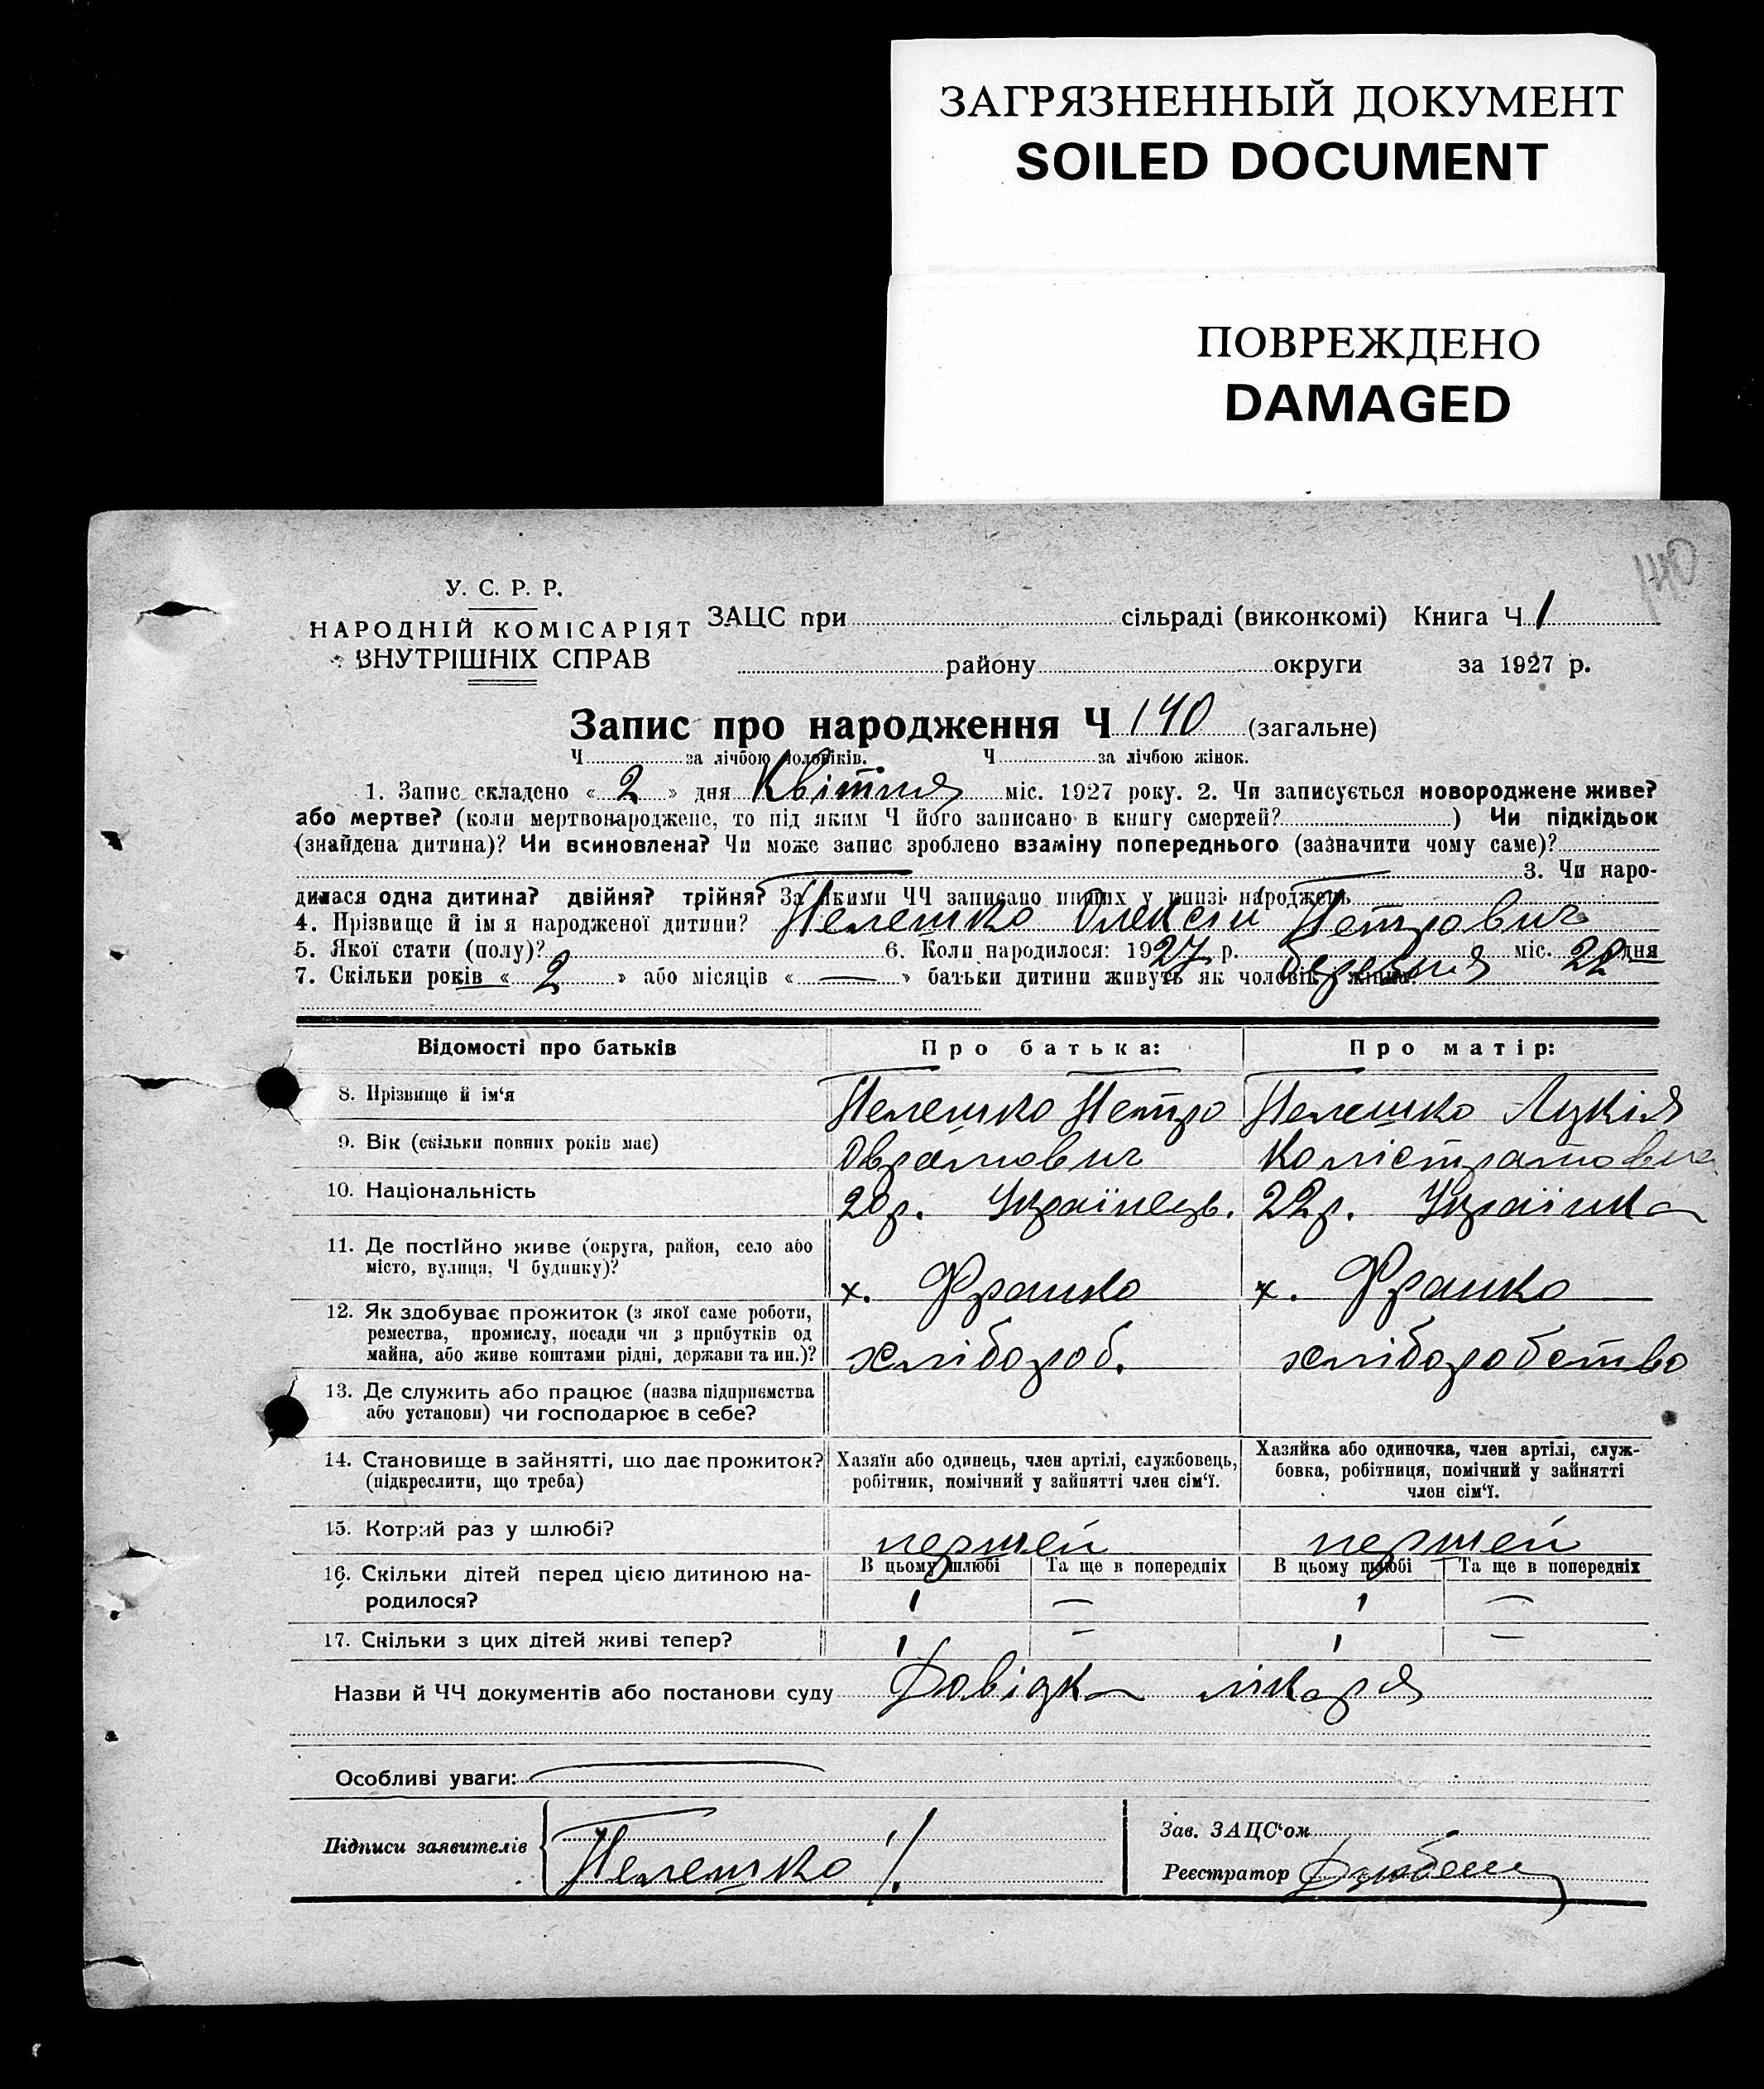 ЗАГРЯЗНЕННЫЙ ДОКУМЕНТ
SOILED DOCUMENT
ПОВРЕЖДЕНО
DAMAGED
140
У. С. Р. Р.
НАРОДНІЙ КОМІСАРІЯТ
ВНУТРІШНІХ СПРАВ
ЗАЦС при сільраді (виконкомі) Книга Ч 1
району округи за 1927 р.
Запис про народження Ч 140 (загальне)
Ч за лічбою чоловіків. Ч за лічбою жінок.
1. Запис складено « 2 » дня Квітня міс. 1927 року. 2. Чи записується новороджене живе?
або мертве? (коли мертвонароджене, то під яким Ч його записано в книгу смертей? ) Чи підкідьок
(знайдена дитина)? Чи всиновлена? Чи може запис зроблено взаміну попереднього (зазначити чому саме)?
3. Чи наро-
дилася одна дитина? двійня? трійня? За якими ЧЧ записано инших у книзі народжень
4. Прізвище й ім я народженої дитини? Пелешко Олексій Петрович
5. Якої стати (полу)? 6. Коли народилося: 1927 р. березня міс. 22 дня
7. Скільки років « 2 » або місяців « — » батьки дитини живуть як чоловік і жінка?
Відомості про батьків Про батька: Про матір:
8. Прізвище й ім‘я Пелешко Петро Пелешко Лукія
9. Вік (скільки повних років має) Оврамович Калістратовна
10. Національність 20р. Українець. 22р. Українка
11. Де постійно живе (округа, район, село або
місто, вулиця, Ч будинку)? х. Франко х. Франко
12. Як здобуває прожиток (з якої саме роботи,
ремества, промислу, посади чи з прибутків од
майна, або живе коштами рідні, держави та ин.)? хлібороб. хліборобство
13. Де служить або працює (назва підприємства
або установи) чи господарює в себе?
14. Становище в зайнятті, що дає прожиток?
(підкреслити, що треба)
Хазяїн або одинець, член артілі, службовець,
робітник, помічний у зайнятті член сім‘ї.
Хазяйка або одиночка, член артілі, служ-
бовка, робітниця, помічний у зайнятті
член сім‘ї.
15. Котрий раз у шлюбі? первией первией
16. Скільки дітей перед цією дитиною на-
родилося?
В цьому шлюбі Та ще в попередніх В цьому шлюбі Та ще в попередніх
1 — 1 —
17. Скільки з цих дітей живі тепер? 1 — 1 —
Назви й ЧЧ документів або постанови суду Довідка лікаря
Особливі уваги:
Підписи заявителів Пелешко
Зав. ЗАЦС‘ом
Реєстратор